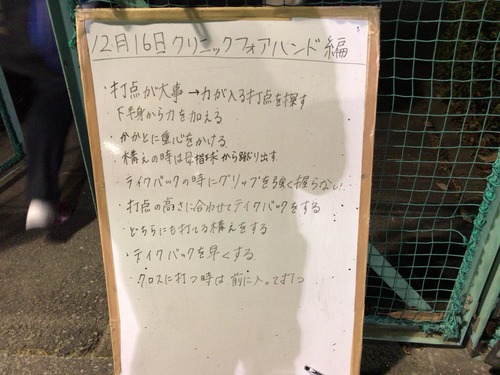 12月16日クリニックフォアハンド編
・打点が大事→力が入る打点を探す
下半身から力を加える
・かかとに重心をかける
・構えの時は母指球から蹴り出す
・テイクバックの時にグリップを強く握らない!
・打点の高さに合わせてテイクバックをする
・どちらにも打てる構えをする
・テイクバックを早くする
・クロスに打つ時は前に入って打つ